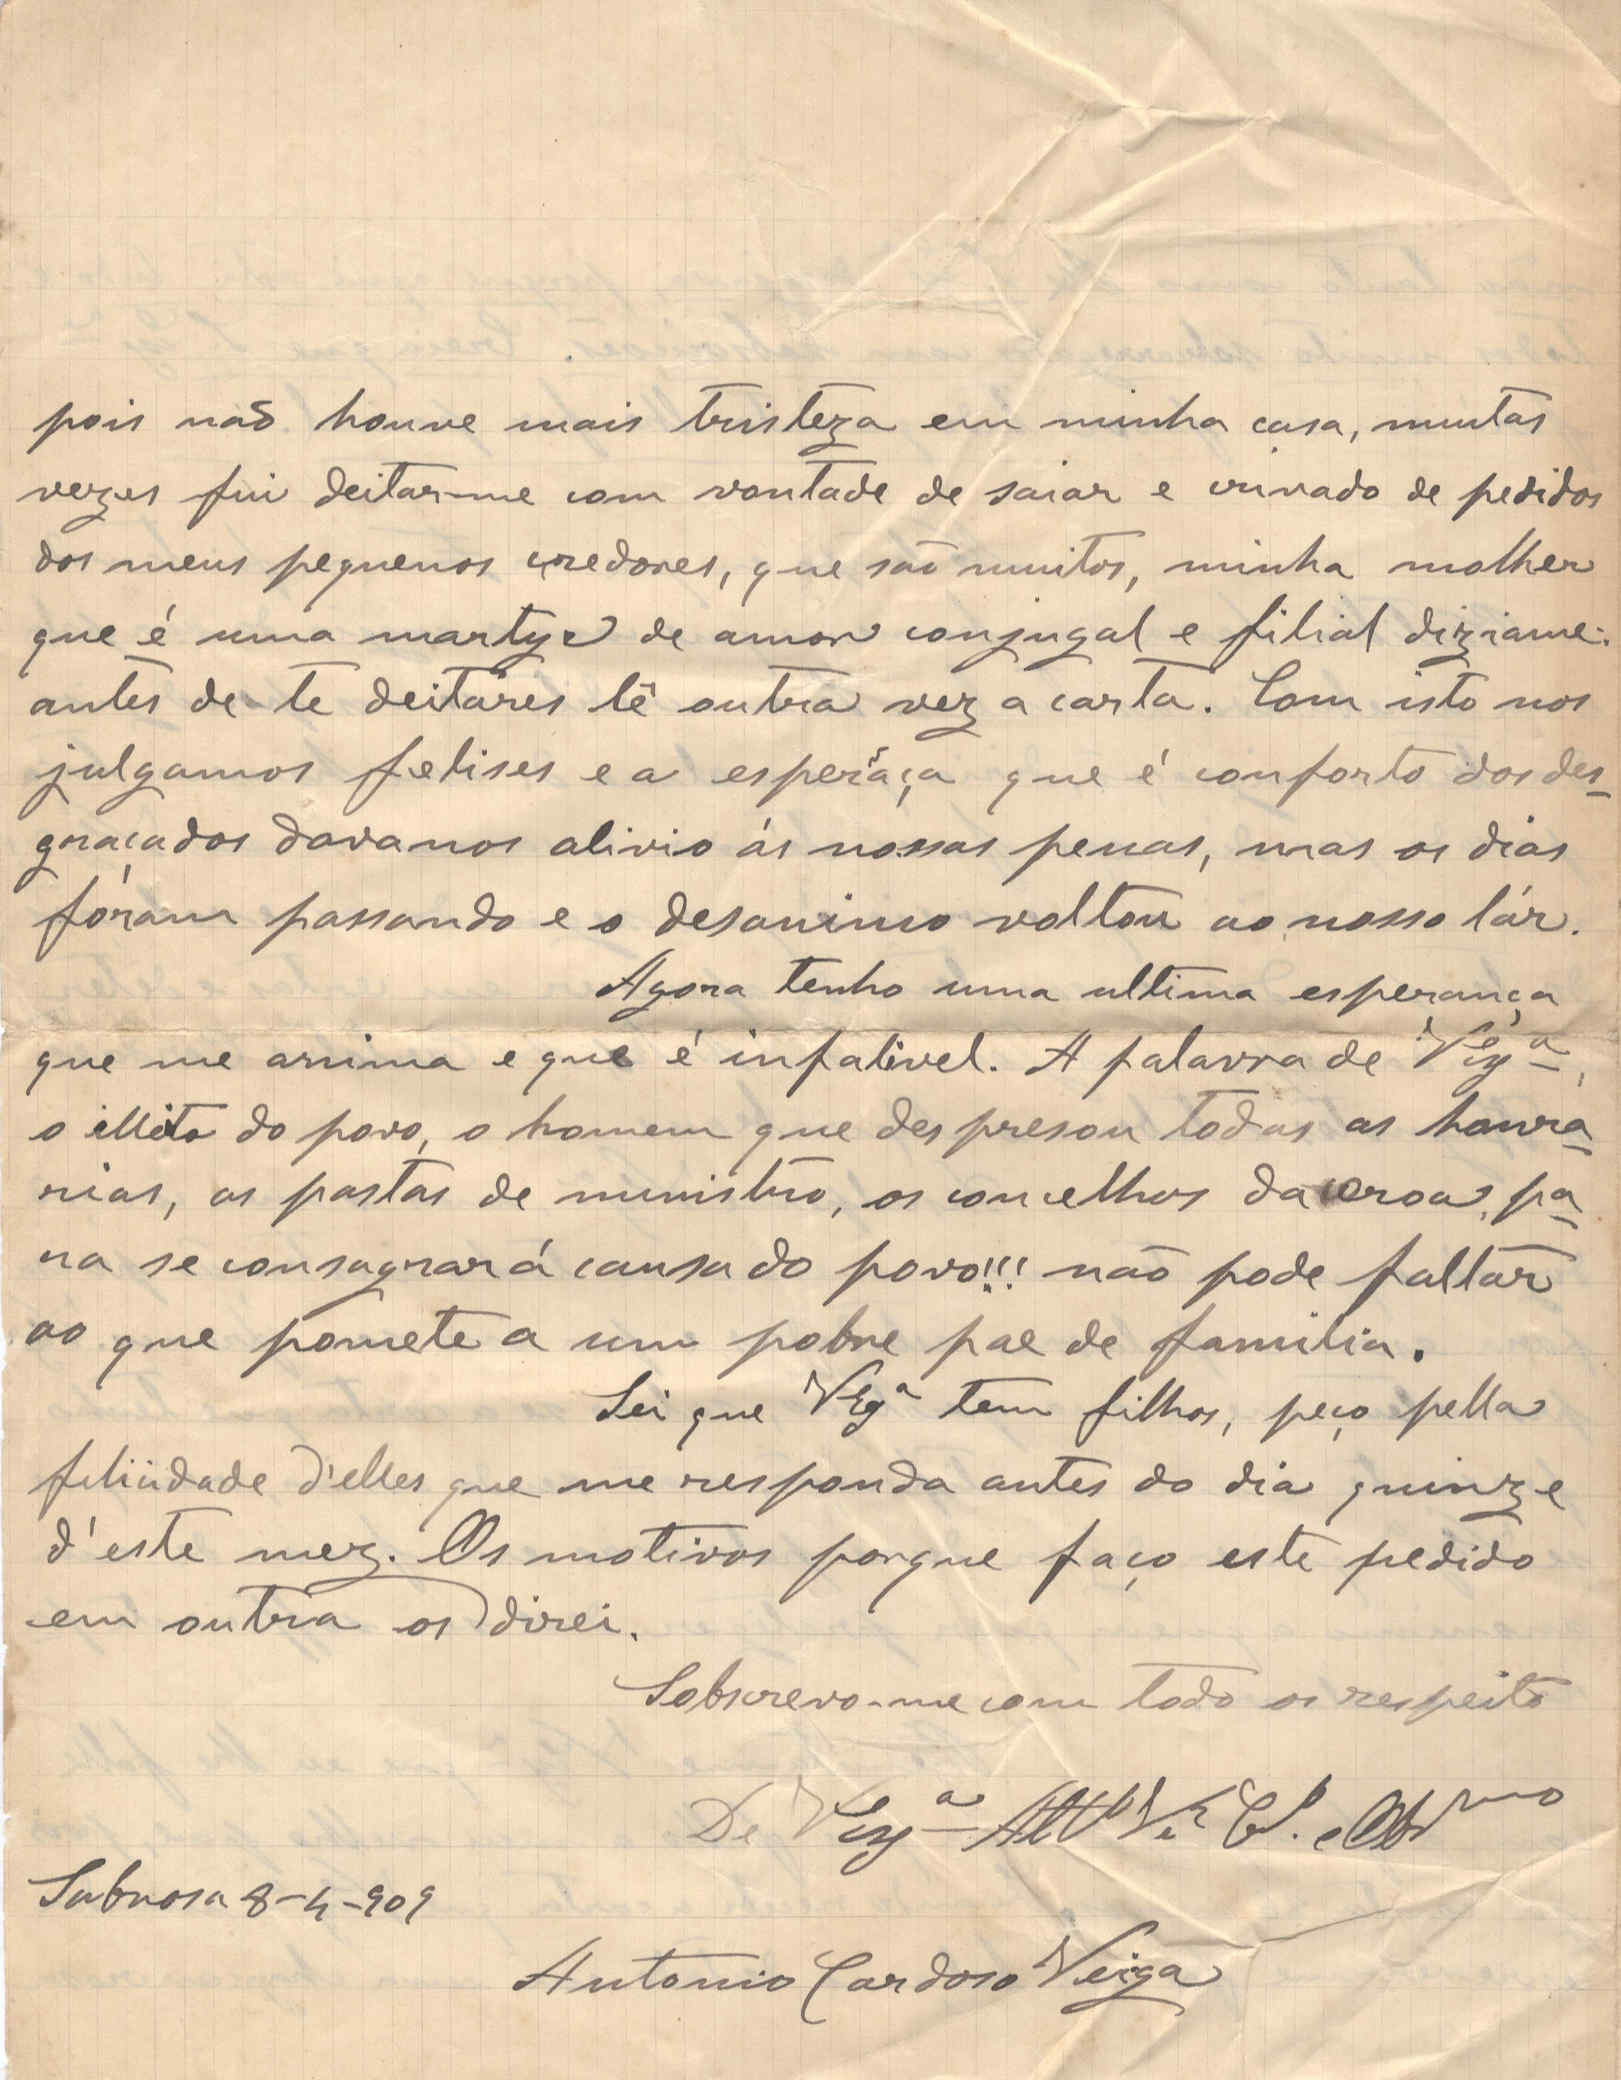 pois não houve mais tristeza em minha casa, muitas
vezes fui deitar-me com vontade de saiar e crivado de pedidos
dos meus pequenos credores, que são muitos, minha molher
que é uma martyr de amor conjugal e filial diziame:
antes de te deitares lê outra vez a carta. Com isto nos
julgamos felises e a esperãça que é conforto dos des-
graçados davanos alivio ás nossas penas, mas os dias
fóram passando e o desanimo voltou ao nosso lár.
Agora tenho uma ultima esperança
que me anima e que é infalivel. A palavra de VExª,
o illeito do povo, o homem que despresou todas as honra-
rias, as pastas de ministro, os concelhos da coroa, pa-
ra se consagrar á causa do povo!!! não pode faltar
ao que pomete a um pobre pae de familia.
Sei que VExª tem filhos, peço pella
felicidade d'elles que me responda antes do dia quinze
d'este mez. Os motivos porque faço este pedido
em outra os direi.
Sobscrevo-me com todo os respeito
De VExª Attº Vʳ Cº. e Obʳmo
Sabrosa 8-4-909
Antonio Cardoso Veiga